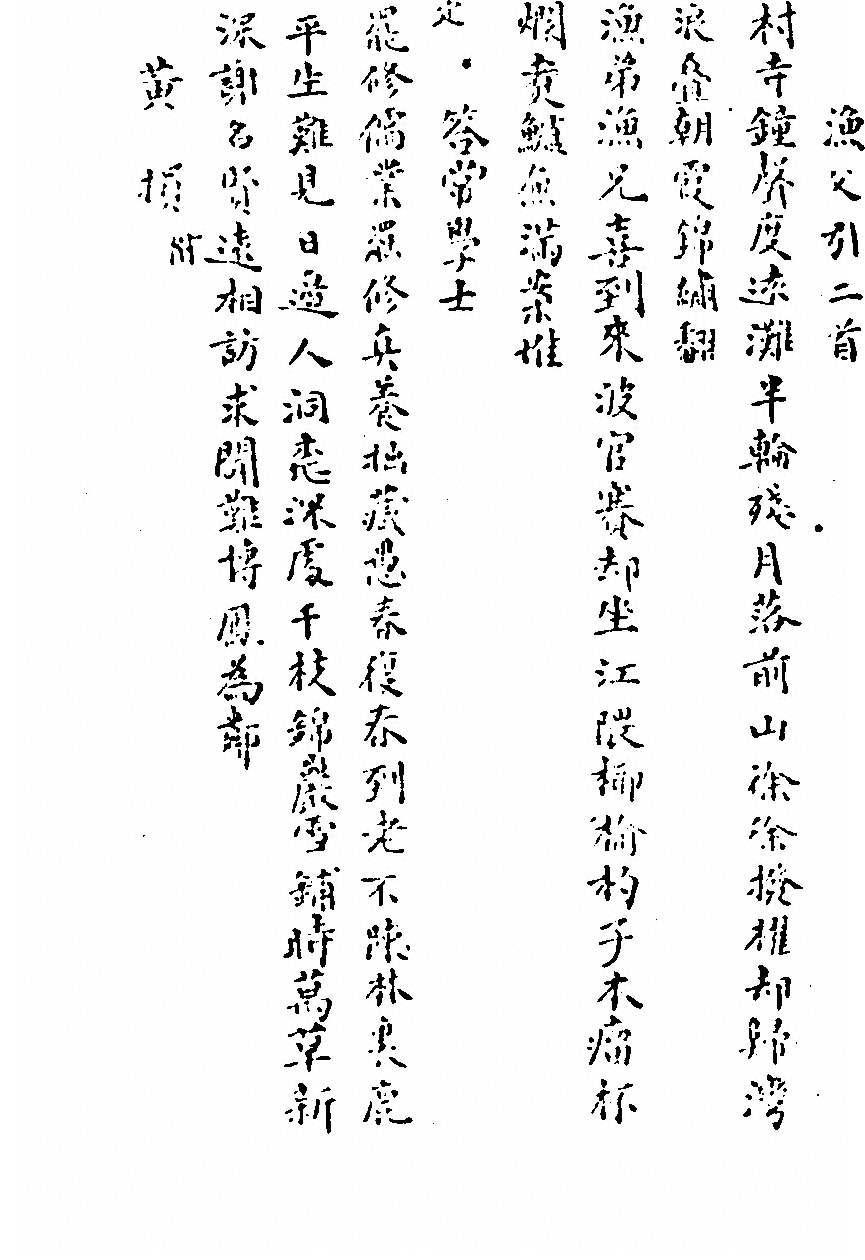 漁父引二首
村寺鐘聲度遠灘半輪殘月落前山徐徐撥櫂却歸灣
浪叠朝霞錦繡翻
漁弟漁兄喜到來波官賽却坐江隈椰榆杓子木瘤杯
爛煑鱸魚滿案堆
答常學士
罷修儒業罷修真養拙藏愚春復春到老不踈林裏鹿
平生難見日邊人洞花深處千枝錦嚴雪鋪時萬草新
深謝名賢遠相訪求聞難博鳳為鄰
黃損附